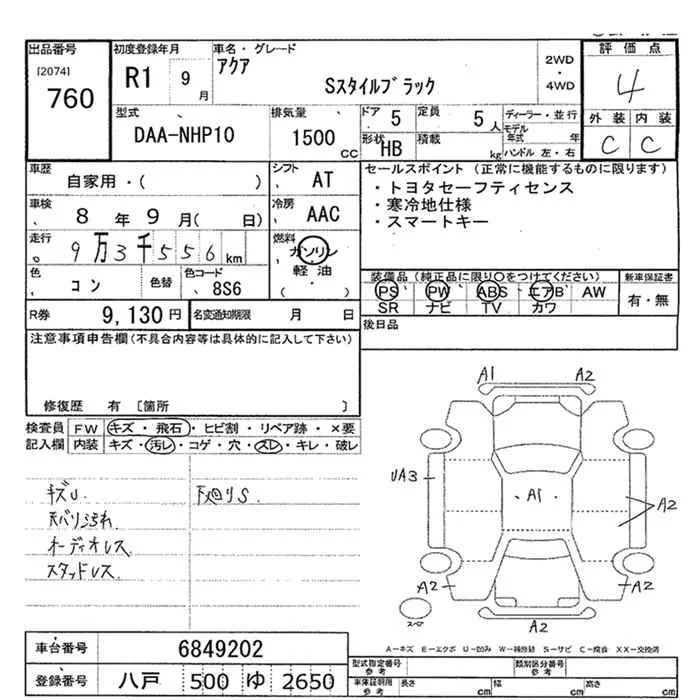 出品番号
[2074]
760
初度登録年月
R1 9 月
車名・グレード
アクア
Sスタイルブラック
2WD
・
4WD
評価点
4
外装 内装
C C
型式
DAA-NHP10
排気量
1500 CC
ドア 5
定員 5 人
形状 HB
積載 kg
ディーラー・並行
モデル年式 年
ハンドル 左・右
車歴
自家用・( )
シフト AT
車検 8 年 9 月( 日)
冷房 AAC
走行 9万3千556 km
燃料
ガソリン
・
軽油
( )
色 コン
色替
色コード 8S6
セールスポイント (正常に機能するものに限ります)
・トヨタセーフティセンス
・寒冷地仕様
・スマートキー
装備品 (純正品に限り○をつけてください)
PS PW ABS エアB AW
SR ナビ TV カワ
新車保証書
有・無
R券 9,130 円
名変通知期限 月 日
後日品
注意事項申告欄(不具合内容等は具体的に記入して下さい)
修復歴 有 〔箇所 〕
検査員記入欄
FW キズ・飛石・ヒビ割・リペア跡・×要
内装 キズ・汚レ・コゲ・穴・スレ・キレ・破レ
キズU.
天バリ汚れ
オーディオレス
スタッドレス
下廻りS.
A1 A2
UA3
A1
A2
A2 A2
A2
A-キズ E-エクボ U-凹み W-補修跡 S-サビ C-腐食 XX-交換済
車台番号 6849202
登録番号 八戸 500 ゆ 2650
型式指定番号 参考
類別区分番号 参考
車体証明用 参考 長さ cm 幅 cm 高さ cm